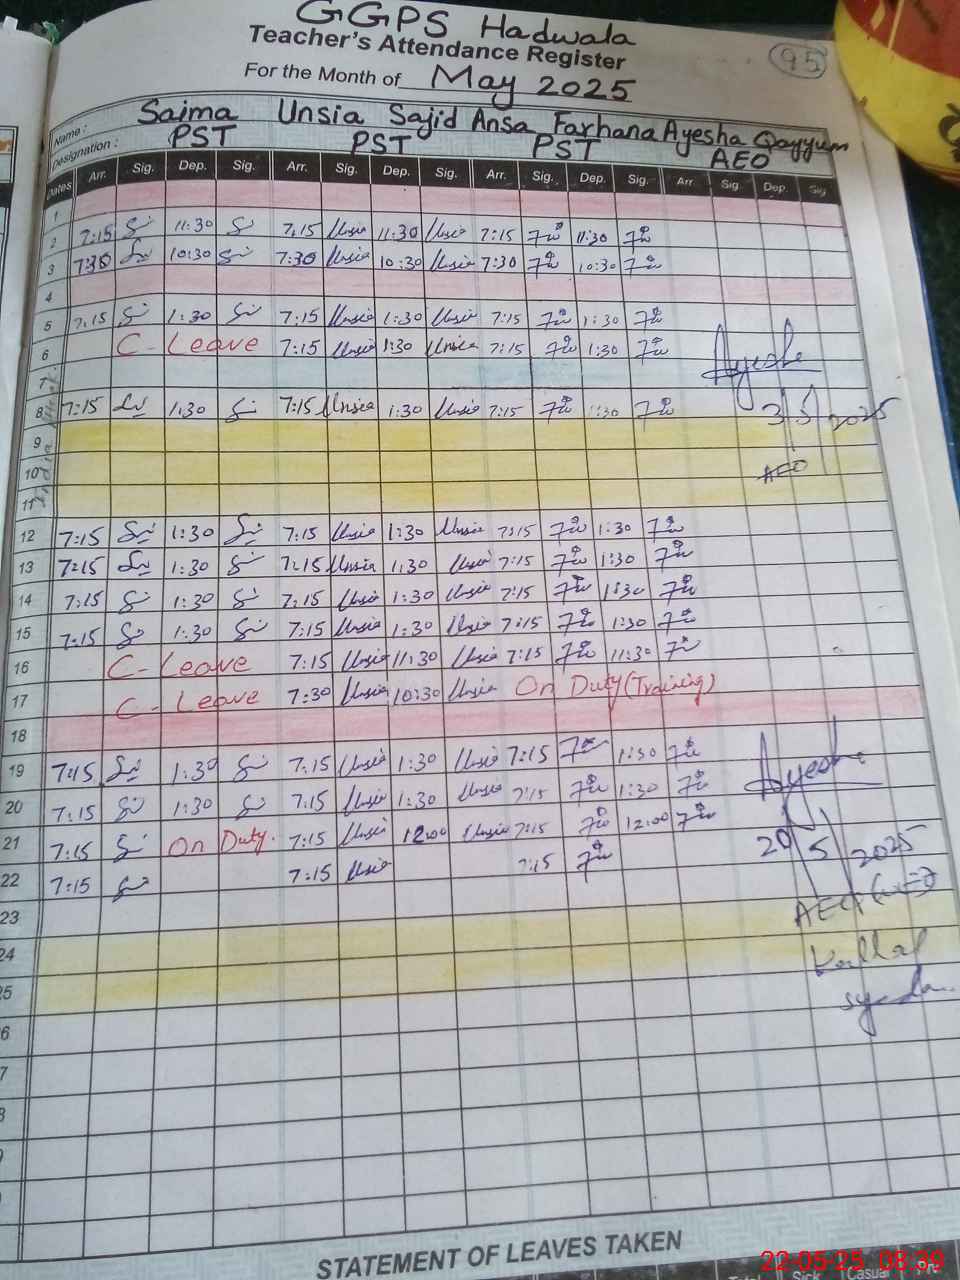 GGPS Hadwala
Teacher's Attendance Register
95
For the Month of May 2025
Name: Saima Unsia Sajid Ansa Farhana Ayesha Qayyum
Designation: PST PST PST AEO
Dates Arr. Sig. Dep. Sig. Arr. Sig. Dep. Sig. Arr. Sig. Dep. Sig. Arr. Sig. Dep. Sig
1
2 7:15 11:30 7:15 Unsia 11:30 Unsia 7:15 11:30
3 7:30 10:30 7:30 Unsia 10:30 Unsia 7:30 10:30
4
5 7:15 1:30 7:15 Unsia 1:30 Unsia 7:15 1:30
6 C-Leave 7:15 Unsia 1:30 Unsia 7:15 1:30 Ayesha
7
8 7:15 1:30 7:15 Unsia 1:30 Unsia 7:15 1:30 3/5/2025
9
10 AEO
11
12 7:15 1:30 7:15 Unsia 1:30 Unsia 7:15 1:30
13 7:15 1:30 7:15 Unsia 1:30 Unsia 7:15 1:30
14 7:15 1:30 7:15 Unsia 1:30 Unsia 7:15 1:30
15 7:15 1:30 7:15 Unsia 1:30 Unsia 7:15 1:30
16 C-Leave 7:15 Unsia 11:30 Unsia 7:15 11:30
17 C-Leave 7:30 Unsia 10:30 Unsia On Duty (Training)
18
19 7:15 1:30 7:15 Unsia 1:30 Unsia 7:15 1:30 Ayesha
20 7:15 1:30 7:15 Unsia 1:30 Unsia 7:15 1:30
21 7:15 On Duty. 7:15 Unsia 12:00 Unsia 7:15 12:00 20/5/2025
22 7:15 7:15 Unsia 7:15
23
24
25
6
7
8
STATEMENT OF LEAVES TAKEN
22-05-25 08:39
Total Sick Casual